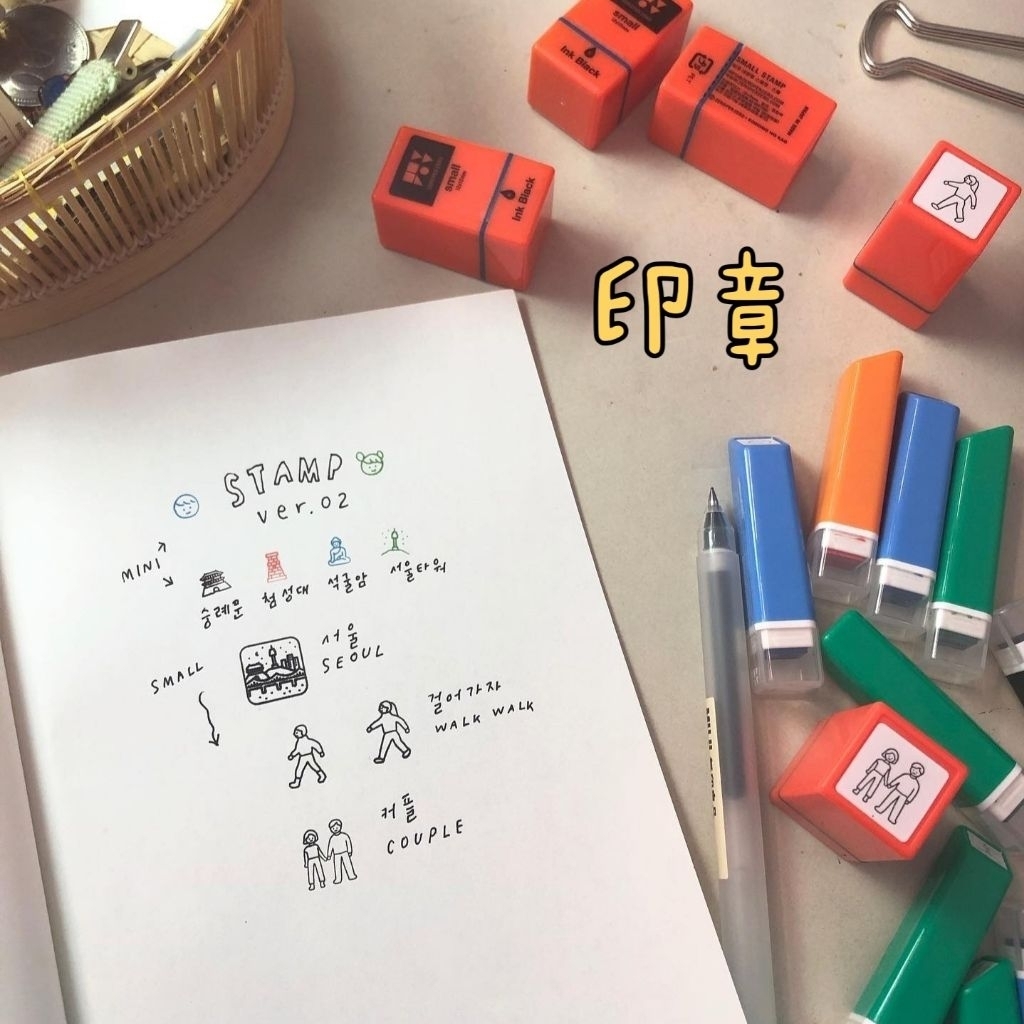 small
Ink Black
SMALL STAMP
MADE IN JAPAN
small
Ink Black
印章
STAMP
ver.02
MINI
숭례문
첨성대
석굴암
서울타워
SMALL
서울
SEOUL
걸어가자
WALK WALK
커플
COUPLE